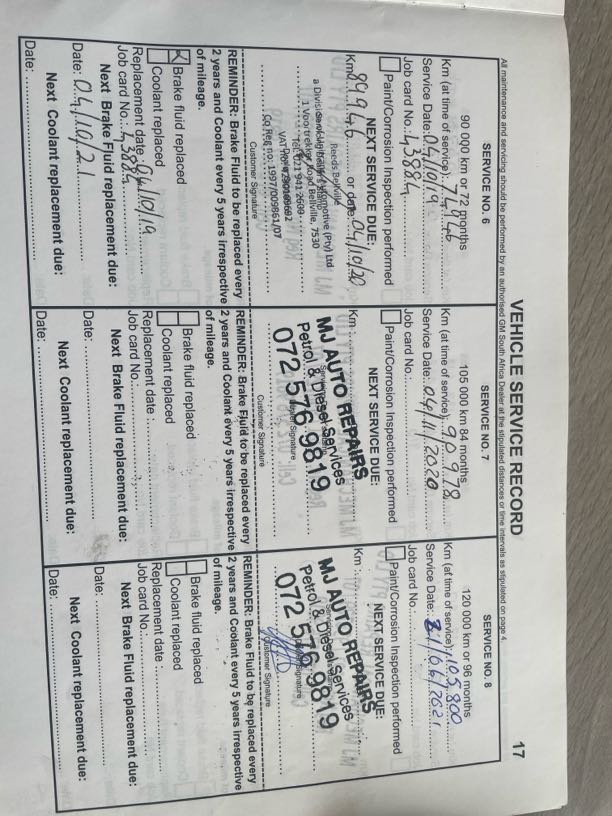 VEHICLE SERVICE RECORD
17
All maintenance and servicing should be performed by an authorised GM South Africa Dealer at the stipulated distances or time intervals as stipulated on page 4.
SERVICE NO. 6
90 000 km or 72 months
Km (at time of service): 74946
Service Date: 04/10/19
Job card No. 43884
Paint/Corrosion Inspection performed
NEXT SERVICE DUE:
Km: 89946 or date: 04/10/20
Reeds Bellville
1 Voortrekker Road Bellville, 7530
Tel: 021 941 2600
Co Reg no: 1997/009861/07
Customer Signature
REMINDER: Brake Fluid to be replaced every
2 years and Coolant every 5 years irrespective
of mileage.
Brake fluid replaced
Coolant replaced
Replacement date: 04/10/19
Job card No. 43884
Next Brake Fluid replacement due:
Date: 04/10/21
Next Coolant replacement due:
Date:
SERVICE NO. 7
105 000 km 84 months
Km (at time of service): 90978
Service Date: 04/11/2020
Job card No.
Paint/Corrosion Inspection performed
NEXT SERVICE DUE:
Km:
MJ AUTO REPAIRS
Petrol & Diesel Services
072 576 9819
Customer Signature
REMINDER: Brake Fluid to be replaced every
2 years and Coolant every 5 years irrespective
of mileage.
Brake fluid replaced
Coolant replaced
Replacement date :
Job card No. :
Next Brake Fluid replacement due:
Date:
Next Coolant replacement due:
Date:
SERVICE NO. 8
120 000 km or 96 months
Km (at time of service): 105,800
Service Date: 21/06/2021
Job card No.
Paint/Corrosion Inspection performed
NEXT SERVICE DUE:
Km :
MJ AUTO REPAIRS
Petrol & Diesel Services
072 576 9819
Customer Signature
REMINDER: Brake Fluid to be replaced every
2 years and Coolant every 5 years irrespective
of mileage.
Brake fluid replaced
Coolant replaced
Replacement date :
Job card No. :
Next Brake Fluid replacement due:
Date:
Next Coolant replacement due:
Date: